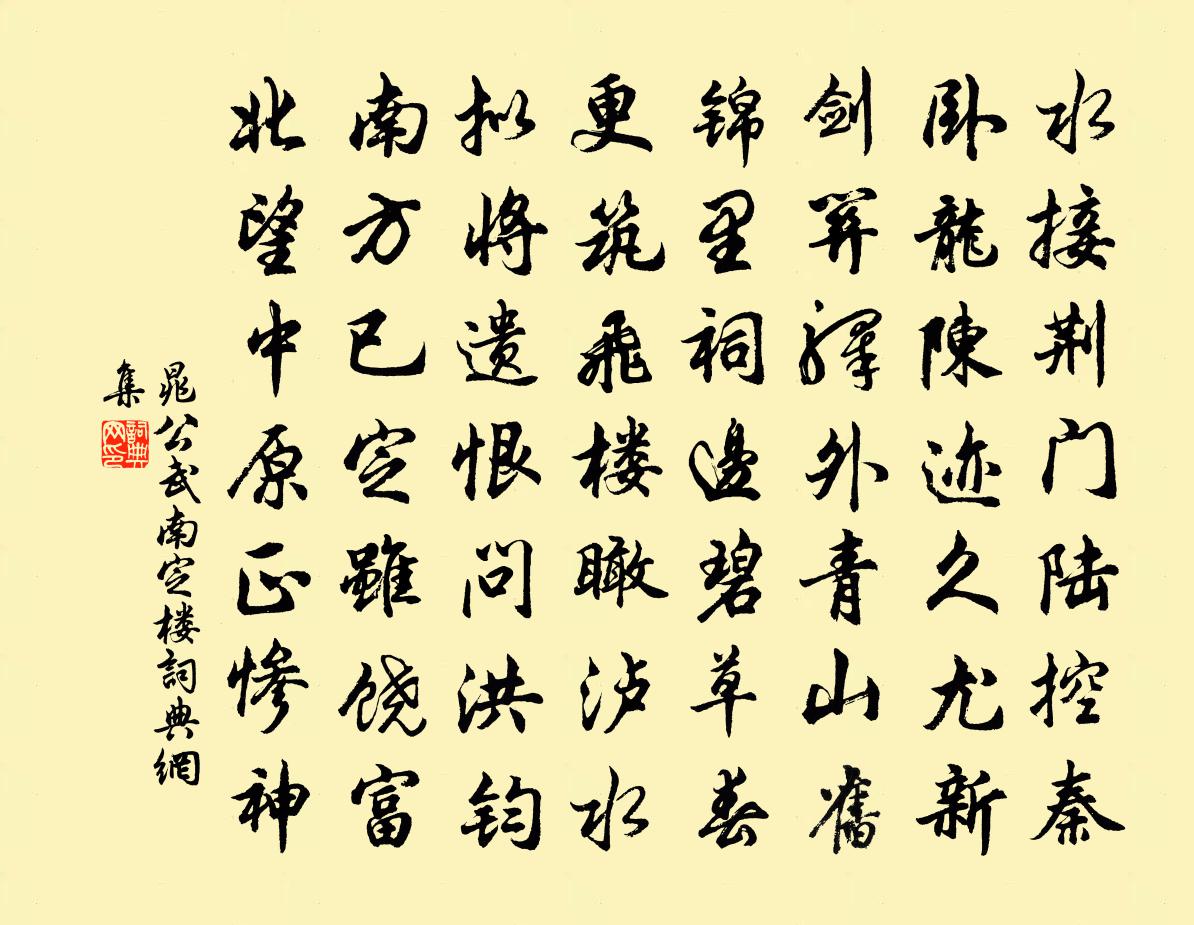 水接荆门陆控秦
卧龍陳迹久尤新
剑关驛外青山舊
锦里祠邊碧草春
更筑飛楼瞰泸水
拟將遗恨问洪钧
南方已定雖饶富
北望中原正惨神
晁公武南定楼詞典網
集
詞典网印